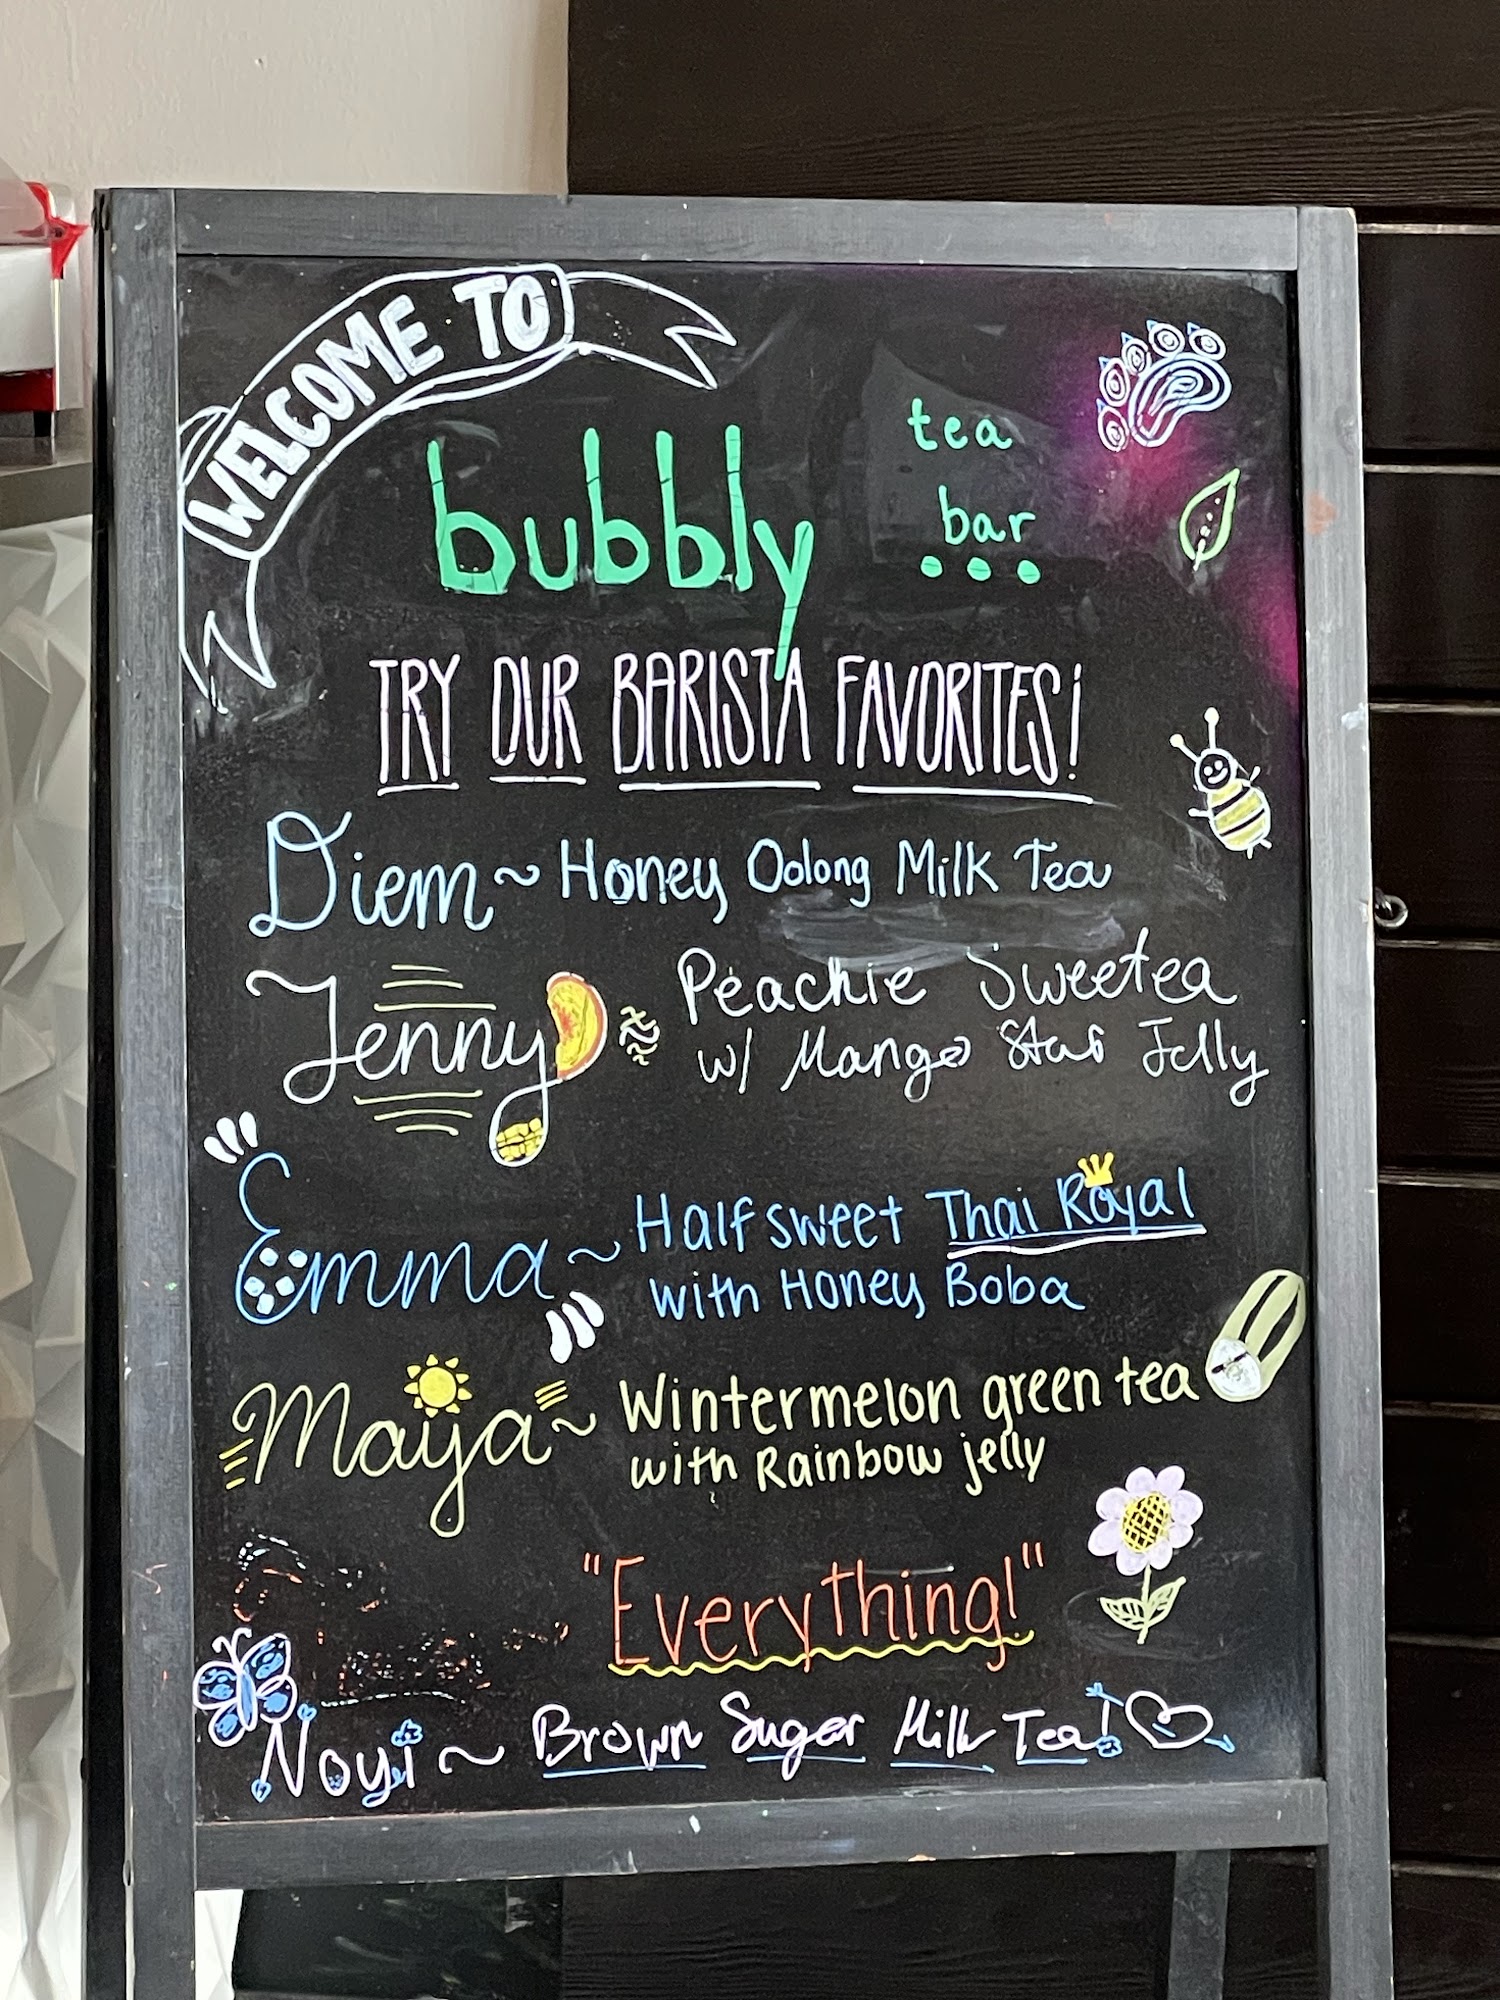 WELCOME TO
bubbly
tea
bar
TRY OUR BARISTA FAVORITES!
Diem ~ Honey Oolong Milk Tea
Jenny ~ Peachie Sweetea
w/ Mango Star Jelly
Emma ~ Half sweet Thai Royal
with Honey Boba
Maya ~ Wintermelon green tea
with Rainbow jelly
"Everything!"
Noyi ~ Brown Sugar Milk Tea!